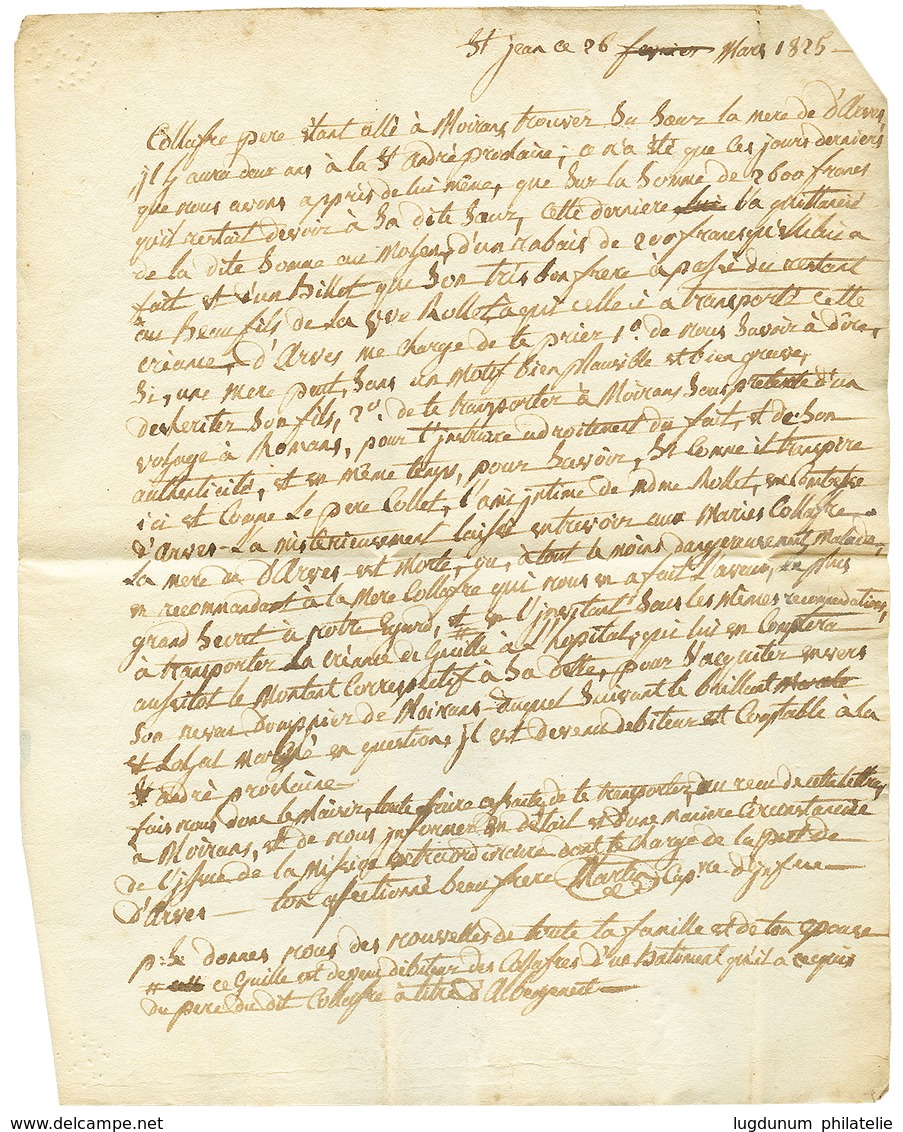 St jean ce 26 fevrier Mars 1825 —
Collafre pere étant allé à Moirans trouver Sa Sœur la mere de d'Arves
jl y aura deux ans à la St andré prochaine; ce n'a été que Ces jours derniers
que nous avons appris de lui même, que Sur la Somme de 2600 francs
qu'il restait devoir à Sa dite Sœur, Cette derniere lui l'a quittancé
de la dite Somme au Moyen, d'un rabais de 200 francs qu'elle lui a
fait et d'un Billet que Son très bon frere à passé du restant
au Beau fils de La Vve Rollet à qui celle ci a transporté cette
créance, d'Arves me charge de te prier 1°. de nous Savoir à dire,
Si, une Mere peut, Sans un Motif bien plausible et bien grave,
desheriter Son fils, 2°. de te transporter à Moirans Sous pretexte d'un
voyage à Romans, pour t'jnstruire adroitement du fait, et de Son
authenticité, et en même tems, pour Savoir, Si Comme il transpire
ici et Comme Le pere Collet, l'ami jntime de mdme Rollet,
d'Arves La misterieusement laissé entrevoir aux Mariés Collafre
La mere de d'Arves est Morte, ou, à tout le moins dangereusement Malade,
en recommandant à la Mere Collafre qui nous en a fait L'aveu, le plus
grand Secret à notre Egard, et en L'jnvitant Sous les mêmes recommendations,
à transporter La créance de Guille à L'hopital, qui lui en Comptera
aussitot le Montant Correspectif à Sa dette, pour S'acquiter envers
Son neveu de Moirans duquel Suivant le brillant
et Loyal Marché en question, jl est devenu debiteur et Comptable à la
St andré prochaine —
fais nous donc le plaisir, toute affaire cessante, de te transporter, au reçu de cette lettre,
à Moirans, et de nous jnformer en détail et d'une maniere Circonstanciée
de L'jssue de la Mission extraordinaire dont te charge de la part de
d'Arves — ton affectionné beau frere Martin Capne d'jnfrie —
p: Se donnes nous des nouvelles de toute ta famille et de ton epouse
# ce Guille est devenu débiteur des Collafres d'un Batiment qu'il a acquis
du pere du dit Collafre à titre d'Albergement —
delcampe.net
lugdunum philatelie